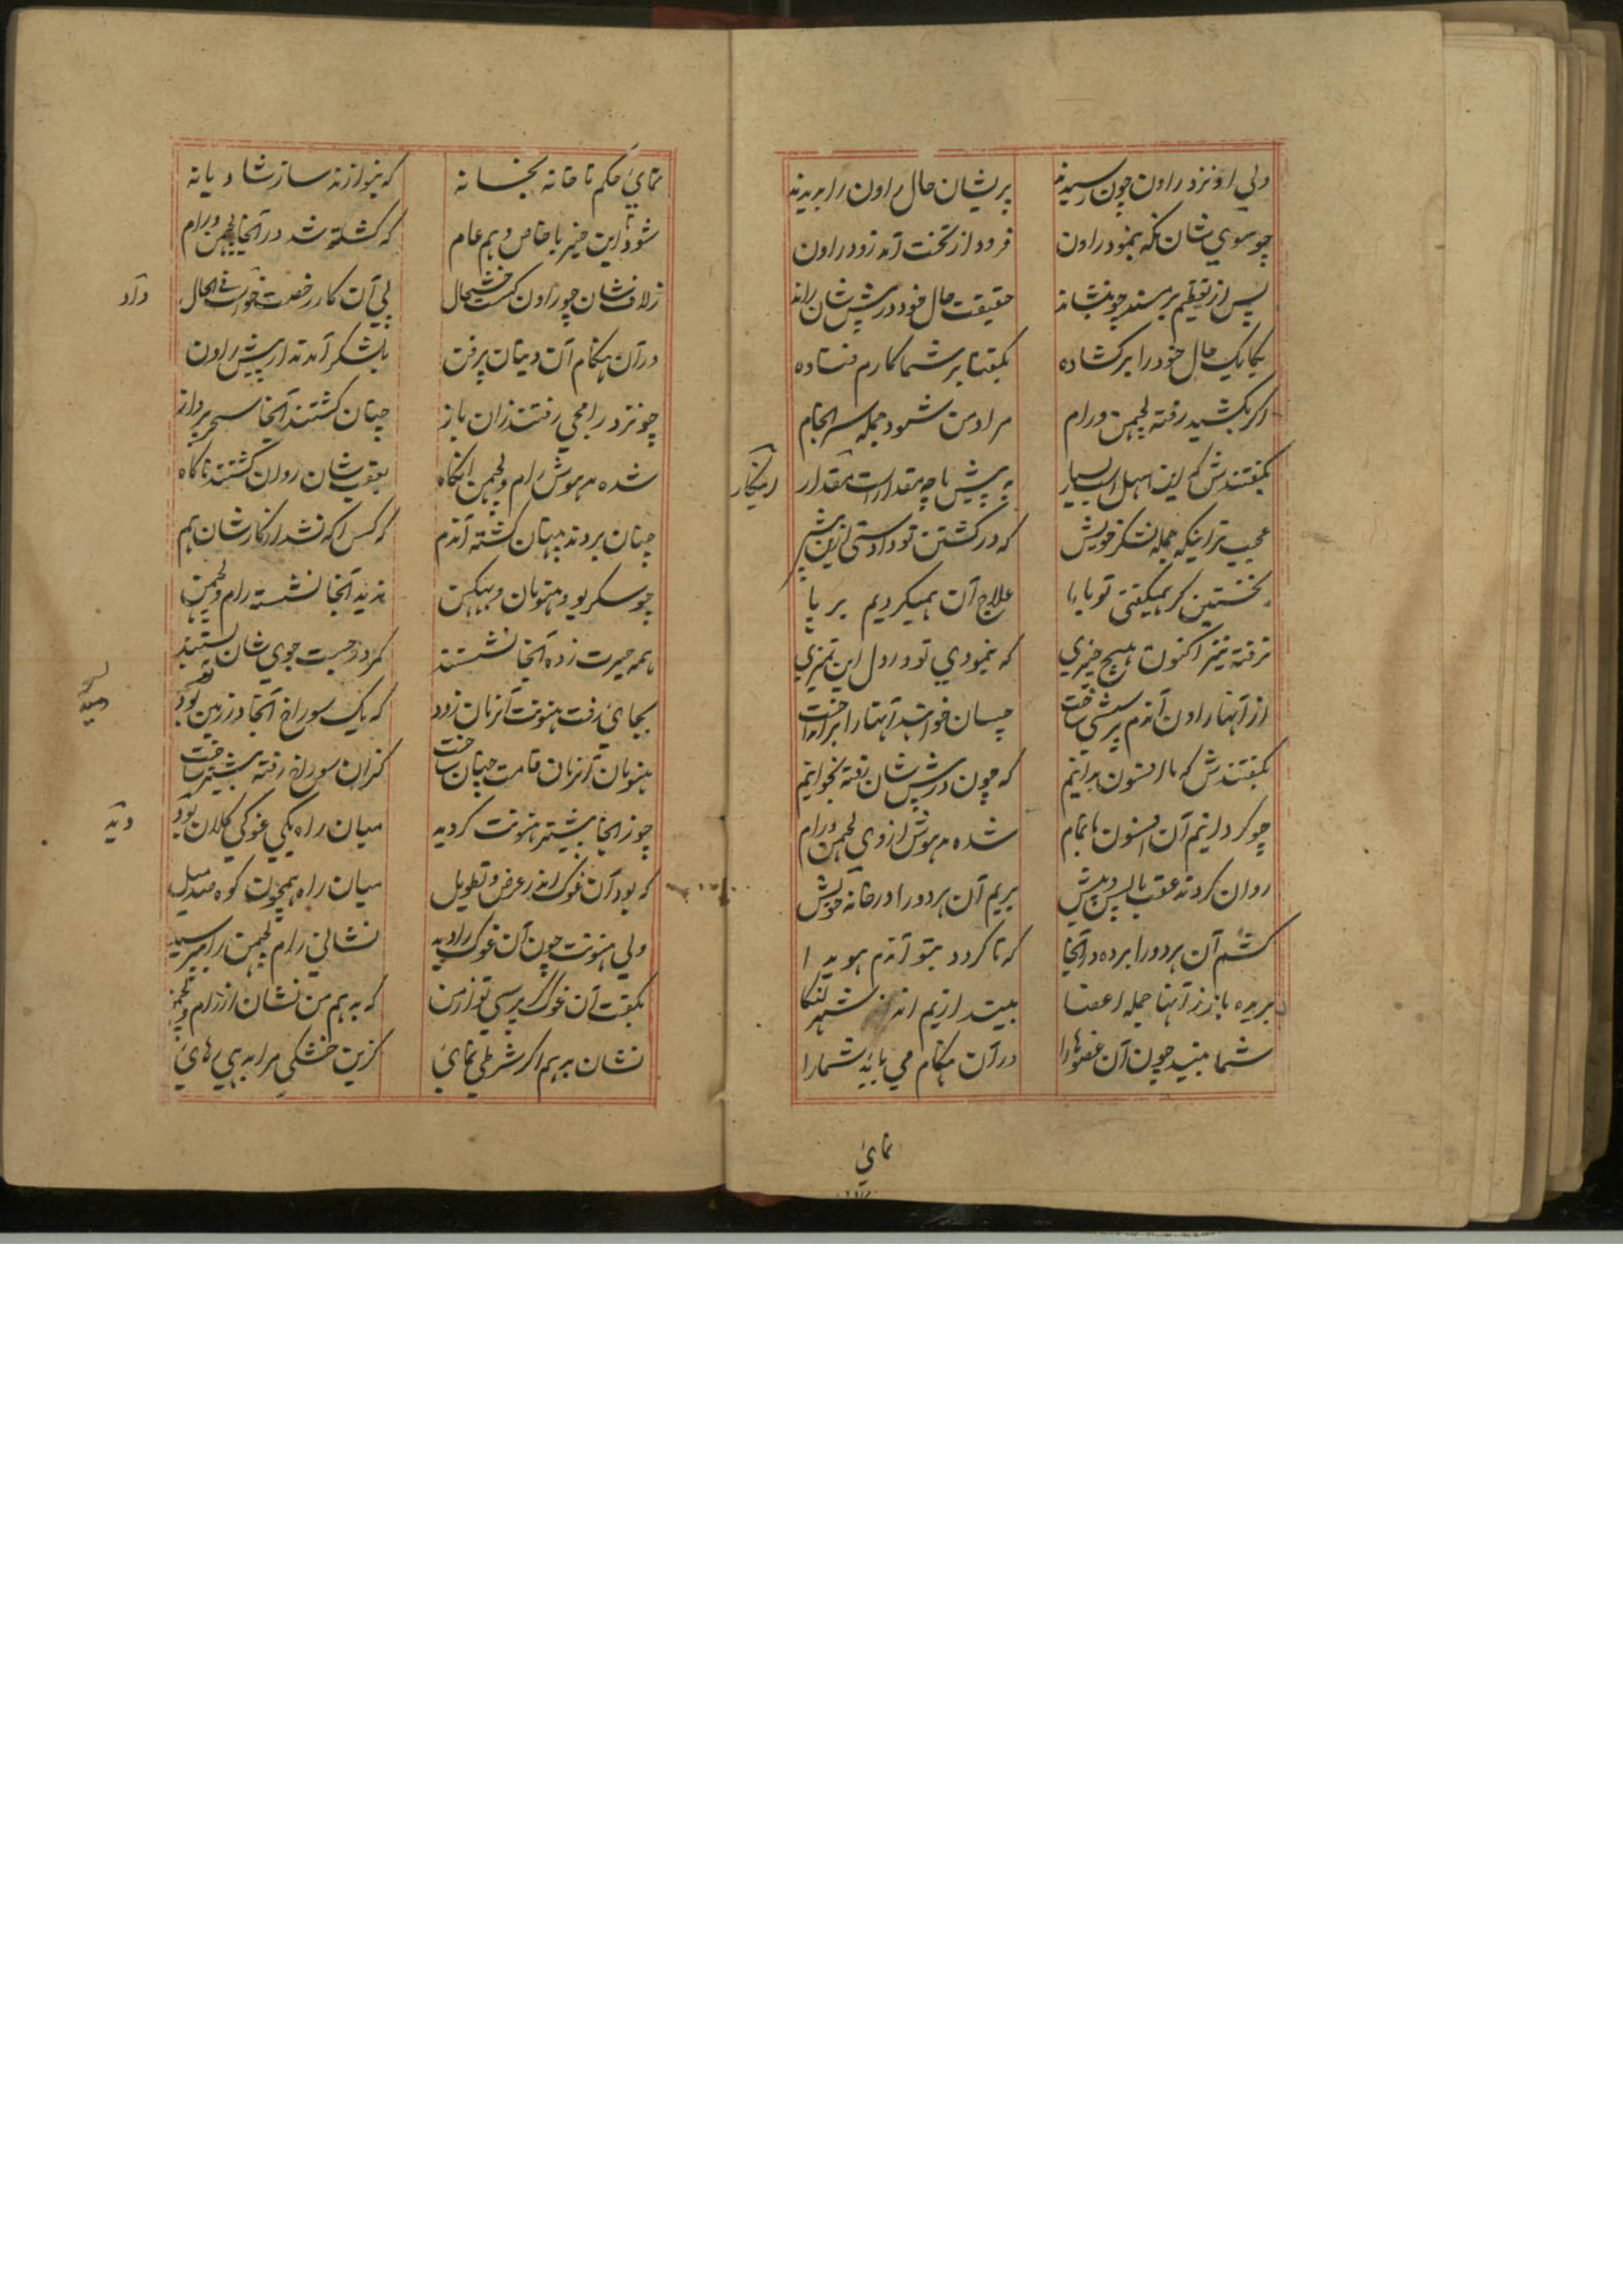 ولی او نزد راون چون رسیدند پریشان حال راون را بدیدند
چو سوی شان نگه بنمود راون فرود از تخت آمد زود راون
پس از تعظیم بر مسند چو بنشاند حقیقت حال خود در پیش شان راند
یکایک حال خود را بر کشاده بگفتا بر شما کارم فتاده
اگر بکشید رفته لچمن و رام مراد من شود جمله سرانجام
بگفتندش که این سهل است بسیار به پیش ما چه مقدار است مقدار
عجیب تر اینکه جمله لشکر خویش که در کشتن تو دادستی ازین پیش
نخستین گر همیگفتی تو با ما علاج آن همیکردیم بر پا
نرفته نیز اکنون هیچ چیزی که بنمودی تو در دل این تمیزی
از آنها راون آندم پرسشی ساخت چسان خواهید آنها را بر انداخت
بگفتندش که ما افسون بدانیم که چون در پیش شان رفته بخوانیم
چو گردانیم آن افسون ها تمام شده مدهوش از وی لچمن و رام
روان کردند عقب ما پس و پیش بریم آن هر دو را در خانه خویش
کشم آن هر دو را برده در آنجا که تا گردد بتو آندم هویدا
بریده باز ز آنها جمله اعضا بیندازیم اندر شهر لنکا
شما بینید چون آن عضوها را در آن هنگام می باید شمارا
نمائی
نمائی حکم تا خانه بخانه که بنوازند ساز شادیانه
شود این خبر با خاص و هم عام که کشته شد در آنجا لچمن و رام
ز لاف شان چو راون گشت خوشحال پی آن کار رخصت خواست فی الحال
در آن هنگام آن دیتان پرفن بلشکر آمدند از پیش راون
چو نزد رامجی رفتند زان باز چنان گشتند آنجا سحر پرداز
شده مدهوش رام و لچمن آنگاه بعقب شان روان گشتند ناگاه
چنان بردند پنهان گشته آندم که کس آگه نشد از کار شان هم
چو سکریو و هنومان و ببیکن ندید آنجا نشسته رام و لچمن
همه حیرت زده آنجا نشستند کمر در جست جوی شان ببستند
بجائی رفت هنونت آنزمان زود که یک سوراخ آنجا در زمین بود
هنومان آنزمان قامت چنان ساخت کزان سوراخ رفته پیشتر ساخت
چو ز آنجا پیشتر هنونت گردید میان راه یکی غوکی کلان بود
که بود آن غوک اندر عرض و تطویل میان راه همچون کوه صد میل
ولی هنونت چون آن غوک را دید نشانی رام لچمن را بپرسید
بگفت آن غوک گر پرسی تو از من که بدهم من نشان از رام و لچمن
نشان بدهم اگر شرطی نمائی کزین خشکی مرا بدهی رهائی